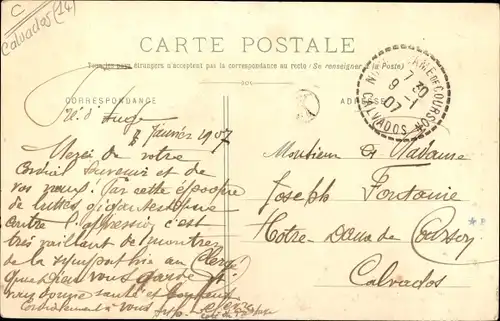 C
Calvados (14)
CARTE POSTALE
Tous les pays étrangers n'acceptent pas la correspondance au recto (Se renseigner à la Poste)
CORRESPONDANCE
ADRESSE
NOTRE-DAME DE COURSON
7 30
9 -1
07
CALVADOS
Janvier 1907
Merci de votre
Cordial Souvenir et de
vos vœux! Par cette époque
de luttes gigantesques
contre l'oppression c'est
très vaillant de montrer
de la sympathie au Clergé
Que Dieu vous garde et
vous donne santé et
Cordialement à vous
Monsieur et Madame
Joseph Fontaine
Notre-Dame de Courson
Calvados